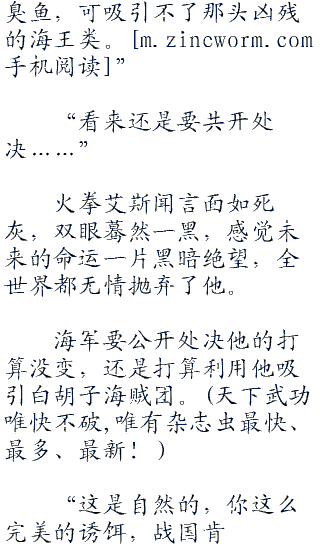 臭鱼，可吸引不了那头凶残
的海王类。[m.zincworm.com
手机阅读]”
“看来还是要共开处
决……”
火拳艾斯闻言面如死
灰，双眼蓦然一黑，感觉未
来的命运一片黑暗绝望，全
世界都无情抛弃了他。
海军要公开处决他的打
算没变，还是打算利用他吸
引白胡子海贼团。(天下武功
唯快不破,唯有杂志虫最快、
最多、最新！)
“这是自然的，你这么
完美的诱饵，战国肯